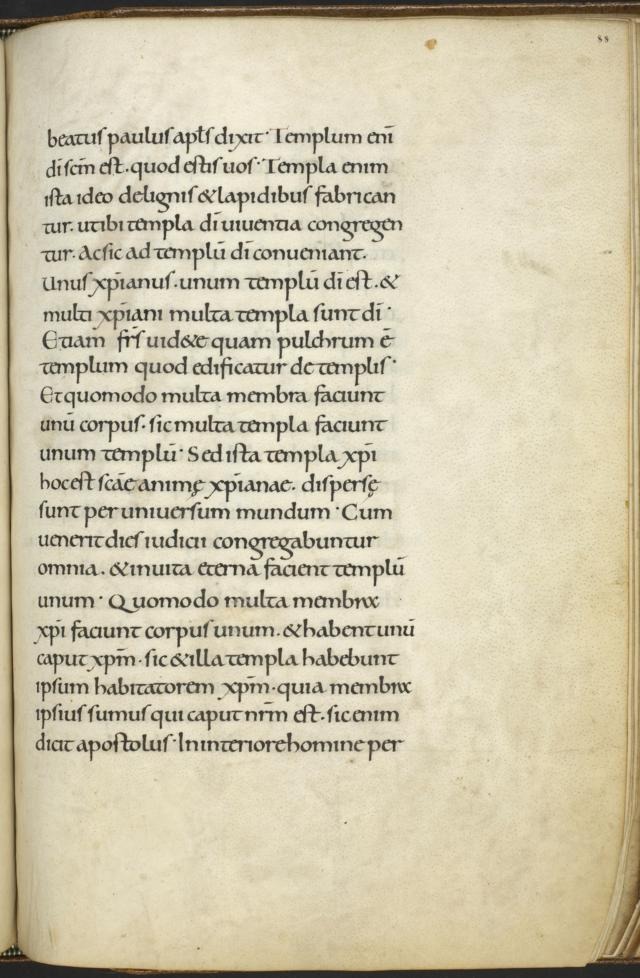 88
beatus paulus apl̅s dixit· Templum eni̅
di̅ sc̅m est. quod estis uos· Templa enim
ista ideo delignis & lapidibus fabrican
tur. ut ibi templa di̅ uiuentia congregen
tur. Ac sic ad templu̅ di̅ conueniant.
Unus xp̅ianus. unum templu̅ di̅ est. &
multi xp̅iani multa templa sunt di̅·
Etiam fr̅s uid&e quam pulchrum e̅
templum quod edificatur de templis·
Et quomodo multa membra faciunt
unu̅ corpus. sic multa templa faciunt
unum templu̅· Sed ista templa xp̅i
hoc est sc̅ae animę xp̅ianae. dispersę
sunt per uniuersum mundum· Cum
uenerit dies iudicii congregabuntur
omnia. & inuita eterna̅ facient templu̅
unum· Quomodo multa membra
xp̅i faciunt corpus unum. & habent unu̅
caput xp̅m. sic & illa templa habebunt
ipsum habitatorem xp̅m. quia membra
ipsius sumus qui caput nr̅m est. sic enim
dicit apostolus· In interiore homine per